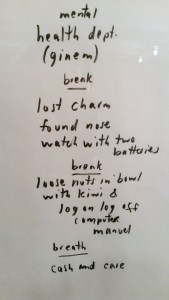 mental
health dept.
(ginem)
break
lost charm
found nose
watch with two
batteries
break
loose nuts in bowl
with kiwi &
log on log off
computer
manuel
breath
cash and care